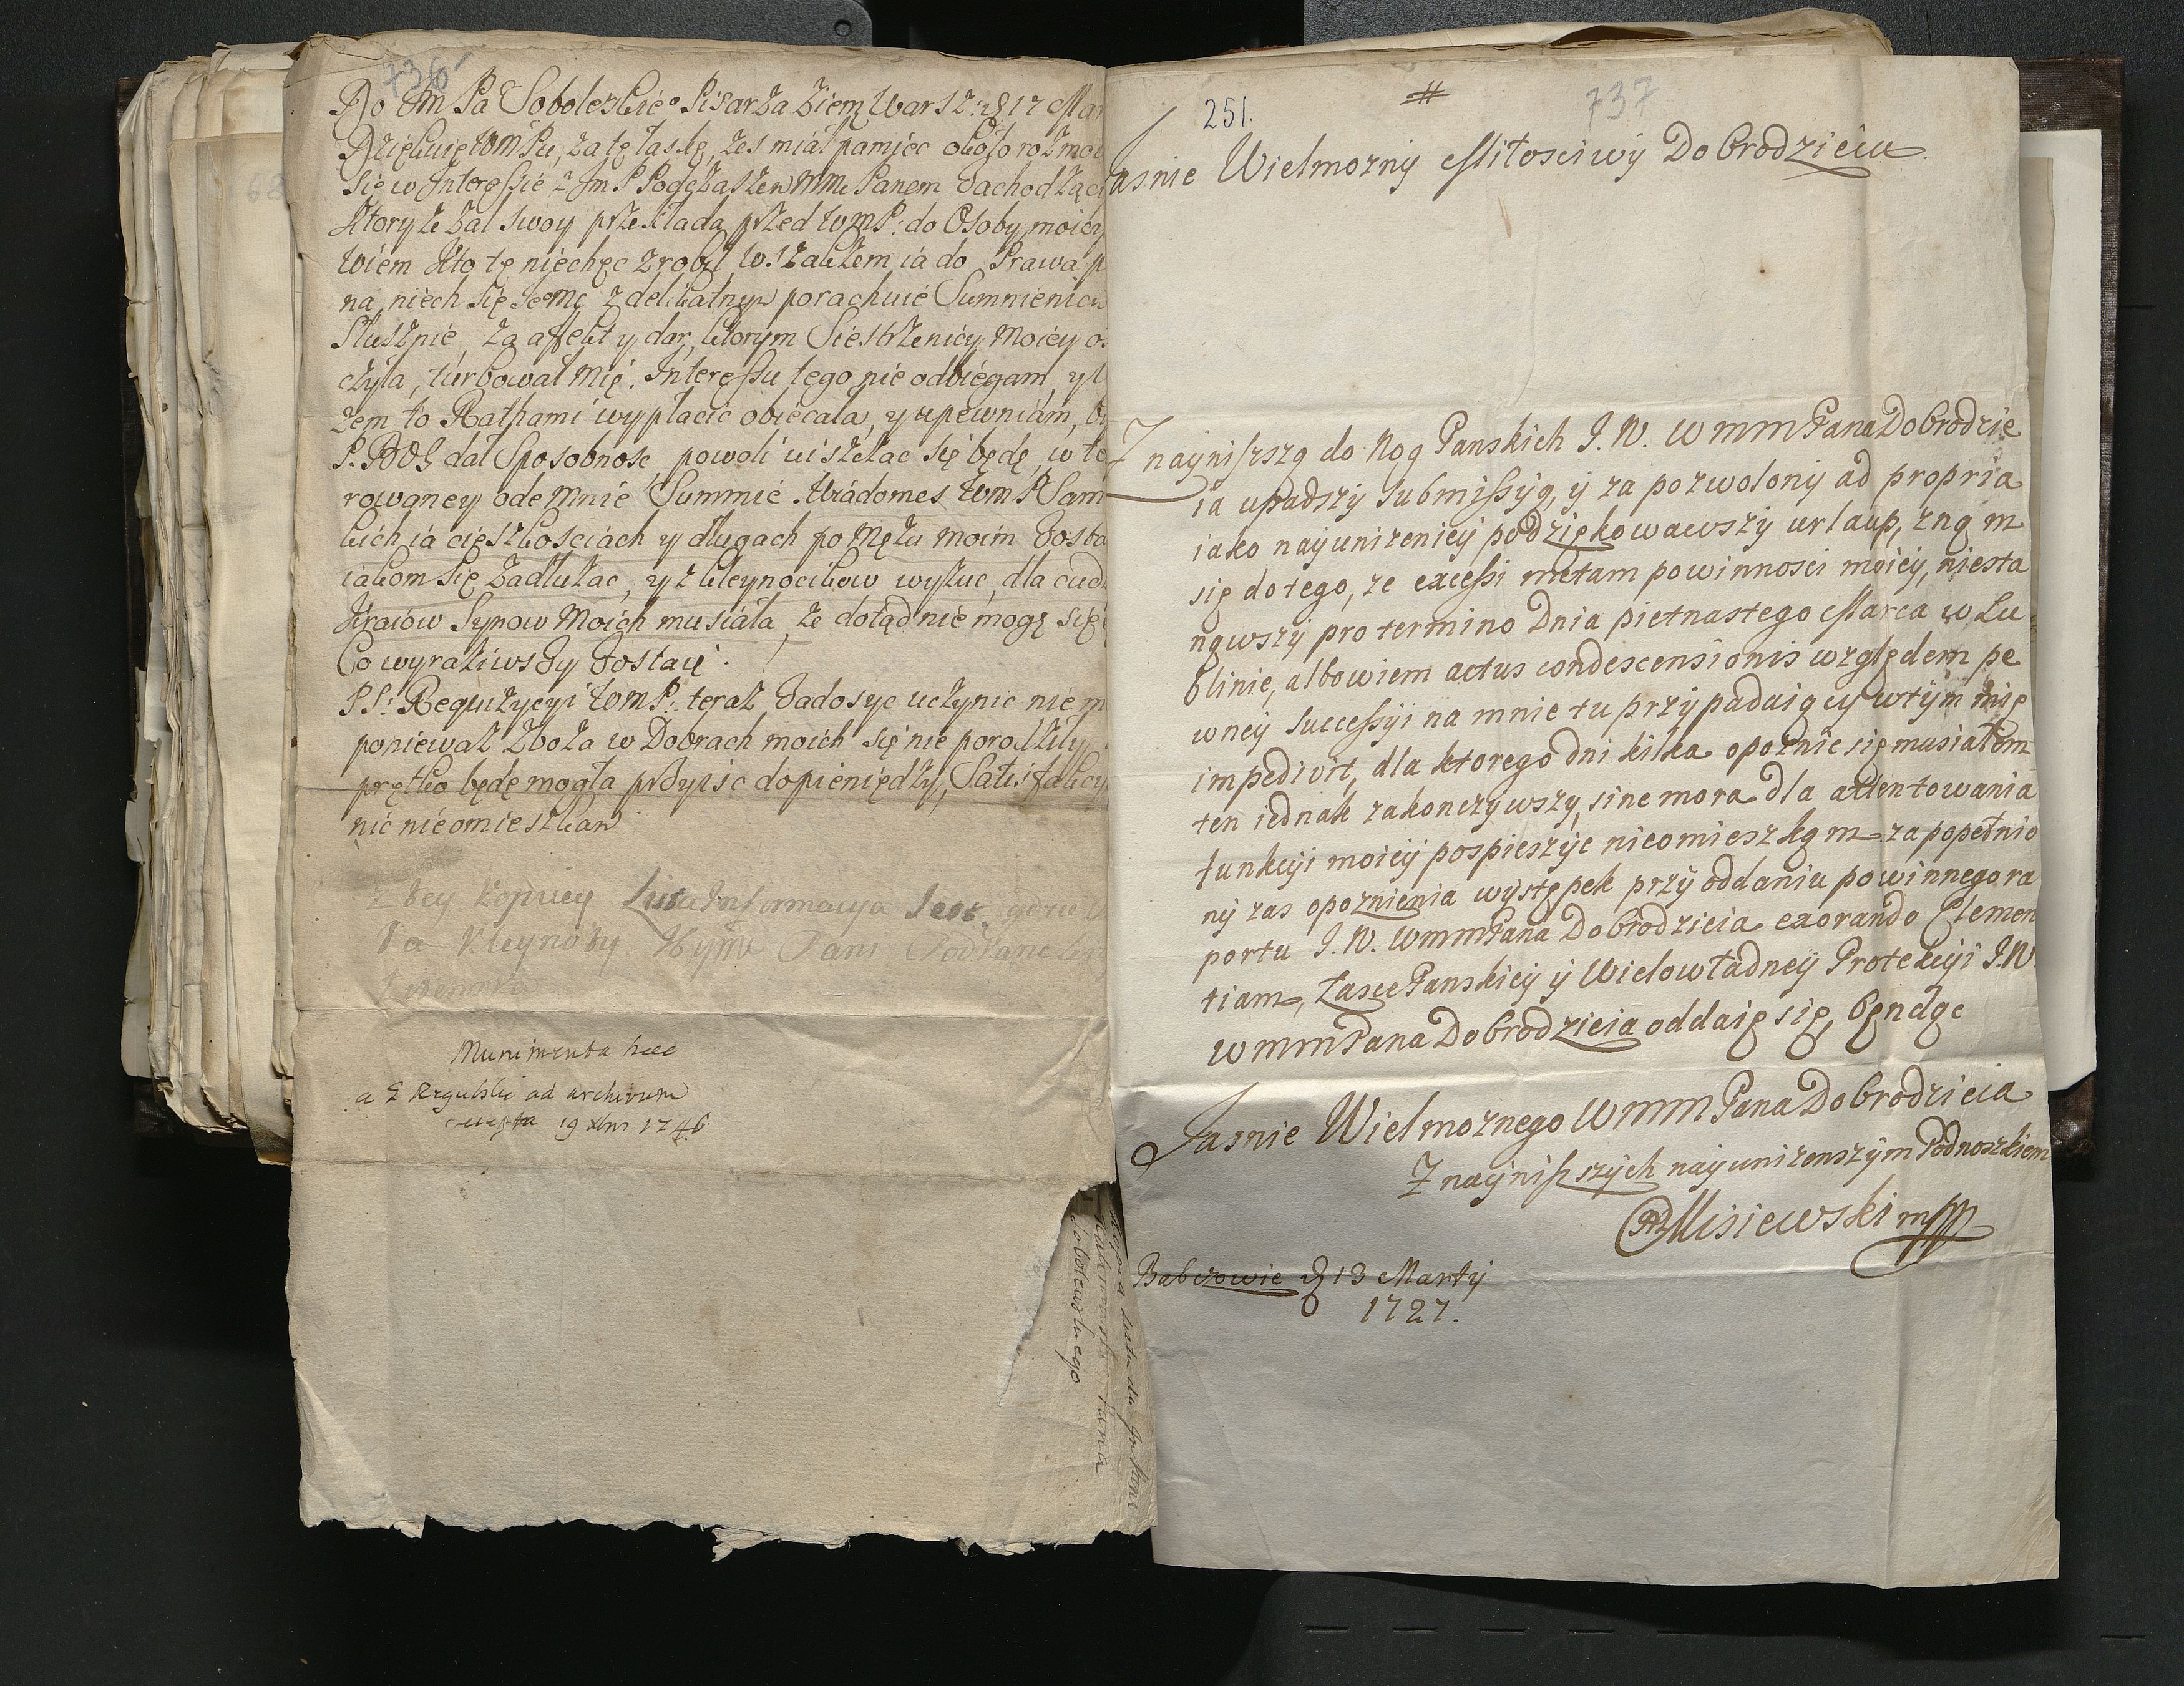 736
Do Jm Pa Sobolewskiego Pisarza Ziemg Warsz: d 17 Mar
Dziękuię WmPu, za tę łaskę, żes miał pamięc około rozmow
Się w Interessie z Jm P Podczaszem WMM Panem Zachodzące
Ktory że żal swoy przekłada przed WmP: do Osoby moiey
Wiem Kto tę niechęc zrobił, wszakżem ia do Prawa p
na, niech się Jemc z delikatnym porachuie Sumnieniem
Słusznie, za affekt y dar, ktorym Siestrzenicy Moiey os
czyła, turbował Mię. Interessu tego nie odbiegam, y k
żem to Rathami wypłacic obiecała, y upewniam, b
P. BOG dał Sposobnosc, powoli uiszczac się będę, w to
rowaney odemnie Summie. Wiadomes Wm P Sam
kich ia cięszkosciach y długach po Mężu moim Zosta
iakom się Zadłużac, y z kleynocikow wyzuc, dla cud
Kraiow Synow Moich musiała, że dotąd nie mogę się
Co wyraziwszy Zostaię.
PS: Requizycyi WmP: teraz Zadosyc uczynic nie m
poniewaz Zboża w Dobrach moich się nie porodziły
prętko będę mogła przyisc do pieniędzy, Satisfakcy
nic nieomieszkam
Z tey kopiiey Listu Informacya Jest gdzie
Kleynoty Pani Podkancler
Munimenta haec
a G Rzgulski ad archivum
19 Xbris 1746
251.
#
737
Jasnie Wielmozny Miłosciwy Dobrodzieiu
Z nayniższą do Nog Panskich J. W. WMM Pana Dobrodzie
ia upadszy submissyą, y za pozwolony ad propria
iako nayunizeniey podziękowawszy urlaup, znam
się do tego, ze excessi metam powinnosci moiey, niesta
nąwszy pro termino Dnia pietnastego Marca w Lu=
blinie, albowiem actus condescensionis względem pe
wney Successyi na mnie tu przypadaiący w tym mię
impedivit, dla ktorego dni kilka opoznic się musiałem
ten iednak zakonczywszy, sine mora dla attentowania
funkcyi moiey pospieszyc nieomieszkam za popełnio
ny zas opoznienia występek przy oddaniu powinnego ra
portu J. W. WMM Pana Dobrodzieia exorando Clemen
tiam, Łasce Panskiey y Wielowładney Protekcyi J. W.
WMM Pana Dobrodzieia oddaię się, Będąc
Jasnie Wielmoznego WMM Pana Dobrodzieia
Z nayniższych nayunizenszym Podnoszkiem
Misiewski mpp
Babczowie d 13 Marty
1727.